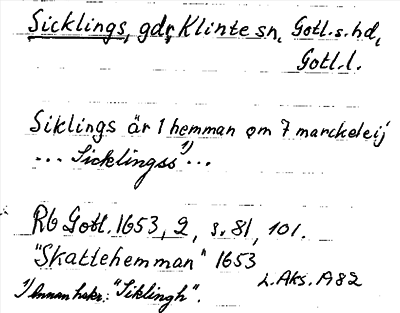 Sicklings, gdr, Klinte sn, Gotl. s. hd,
Gotl. l.
Siklings är 1 hemman om 7 marckeleij
... Sicklingss¹⁾ ...
Rb Gotl. 1653, 2, s. 81, 101.
"Skattehemman" 1653
L. Aks. A 82
¹⁾ Annan hskr.: "Siklingh".